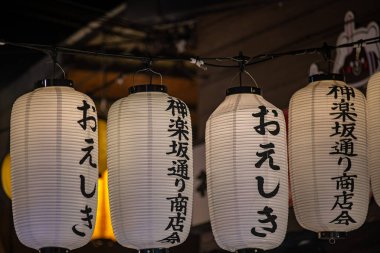 おえしき
神楽坂通り商店会
おえしき
神楽坂通り商店会